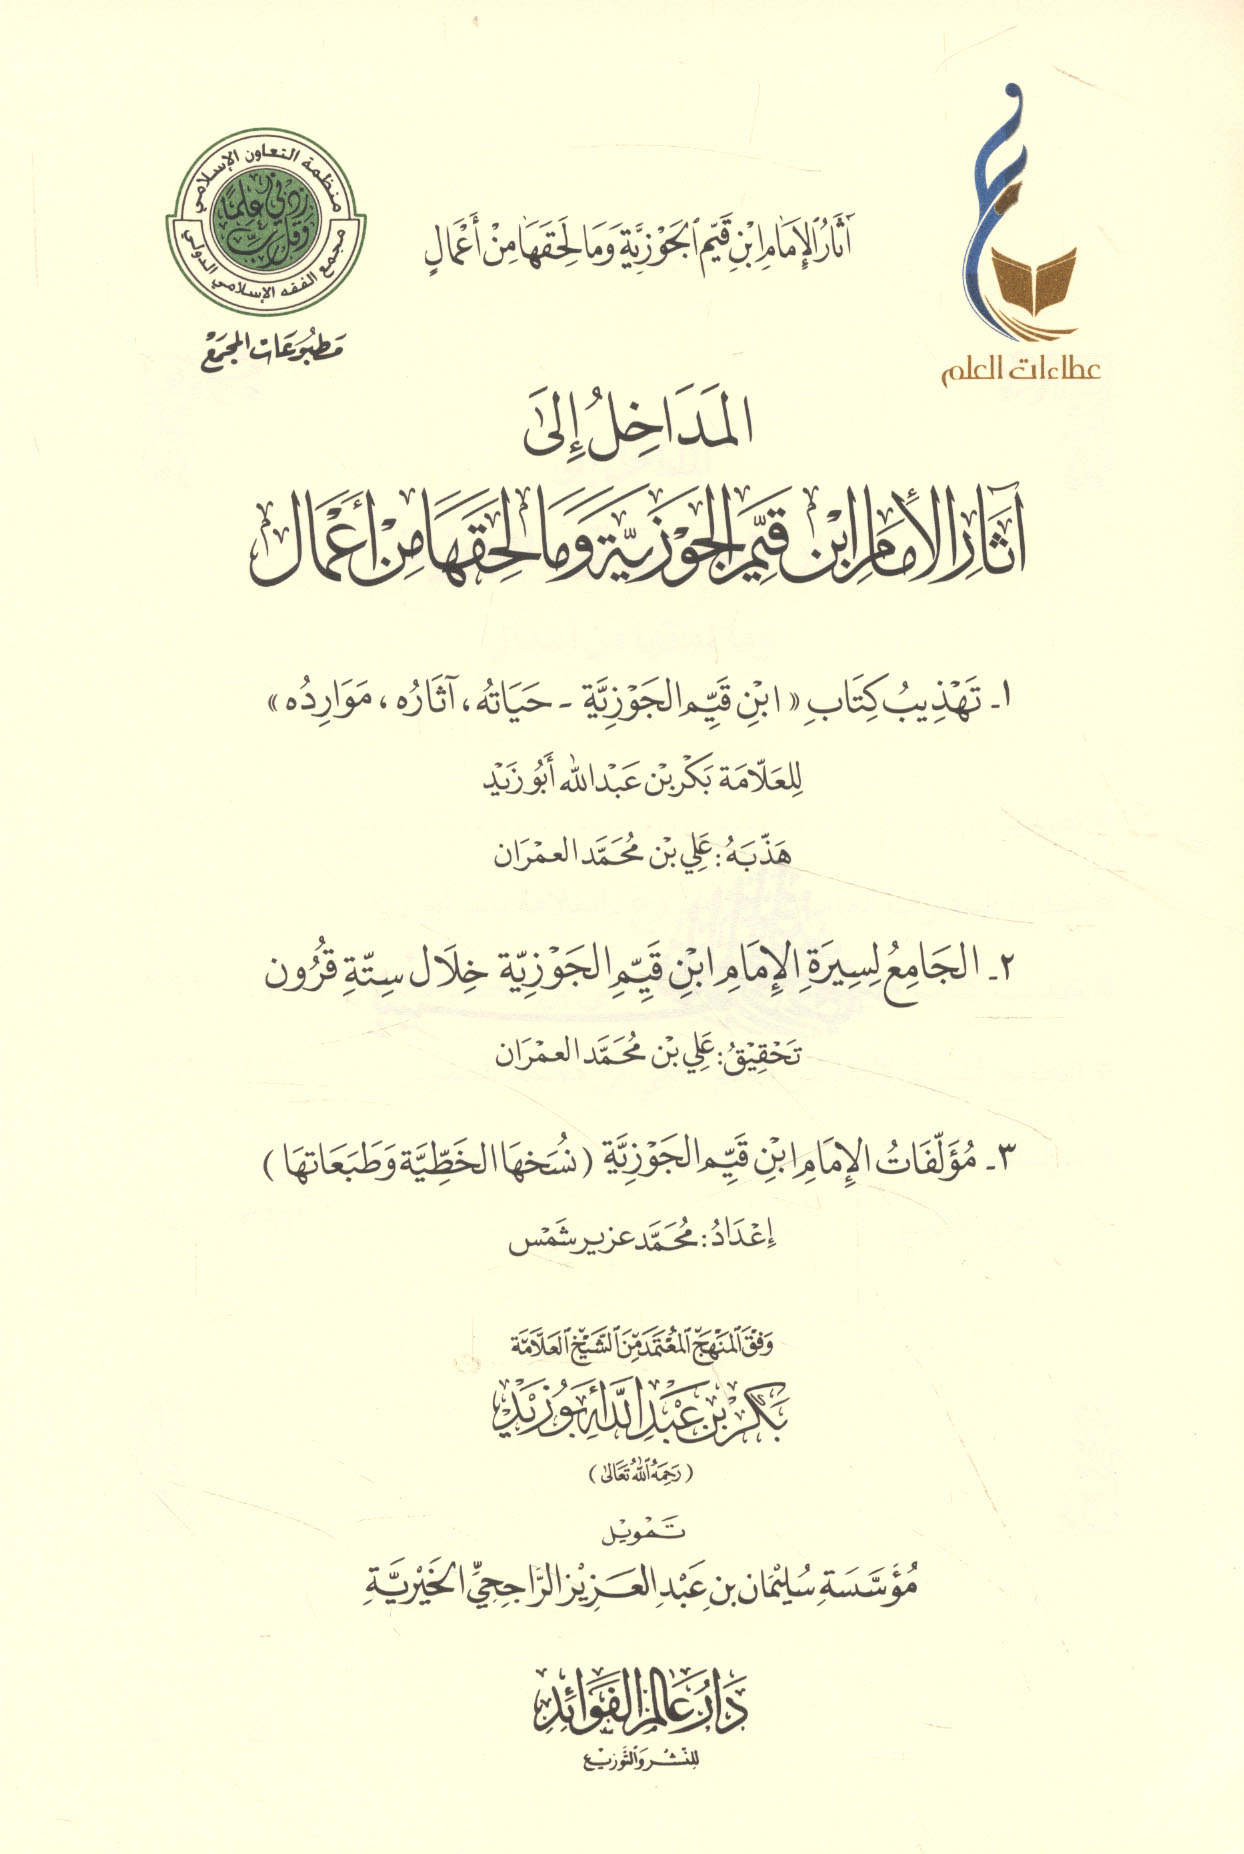 منظمة التعاون الإسلامي
وقل رب زدني علما
مجمع الفقه الإسلامي الدولي
مَطبُوعَات المجَمَعْ
آثَارُ الإِمَامِ ابْنِ قَيِّم الجَوْزِيَّةِ وَمَا لَحِقَهَا مِنْ أَعْمَالٍ
عطاءات العلم
المَدَاخِلُ إِلَى
آثَارِ الإِمَامِ ابْن قَيِّم الجَوْزِيَّة وَمَا لَحِقَهَا مِنْ أَعْمَال
١- تَهْذِيبُ كِتَابِ «ابْنِ قَيِّم الجَوْزِيَّة - حَيَاتهُ، آثَارُه، مَوَارِدُه»
لِلعَلّامَة بَكْر بْن عَبْدالله أَبُو زَيْد
هَذّبَهُ: عَلِي بْن مُحَمَّد العمْرَان
٢- الجَامِعُ لِسِيرَةِ الإِمَامِ ابْنِ قَيِّمِ الجَوْزِيّة خِلَال سِتّةِ قُرُون
تَحْقِيْقُ: عَلِي بْن مُحَمَّد العمْرَان
٣- مُؤَلّفَاتُ الإِمَامِ ابْنِ قَيِّم الجَوْزِيَّة (نُسَخهَا الخَطِّيَّة وَطَبَعَاتهَا)
إِعْدَادُ: مُحَمَّد عزير شَمْس
وَفْقَ المَنْهَجِ المُعْتَمَد مِنَ الشَّيْخِ العَلَّامَة
بَكْر بْن عَبْدِ اللَّه أَبُو زَيْد
(رَحِمَهُ اللهُ تَعَالَى)
تَمْويْل
مُؤَسَّسَةِ سُليْمَان بن عَبْدِ العَزِيْز الرَّاجِحِيِّ الخَيْرِيَّةِ
دَارُ عَالَم الفَوَائِد
لِلنّشْر وَالتَّوْزِيْع